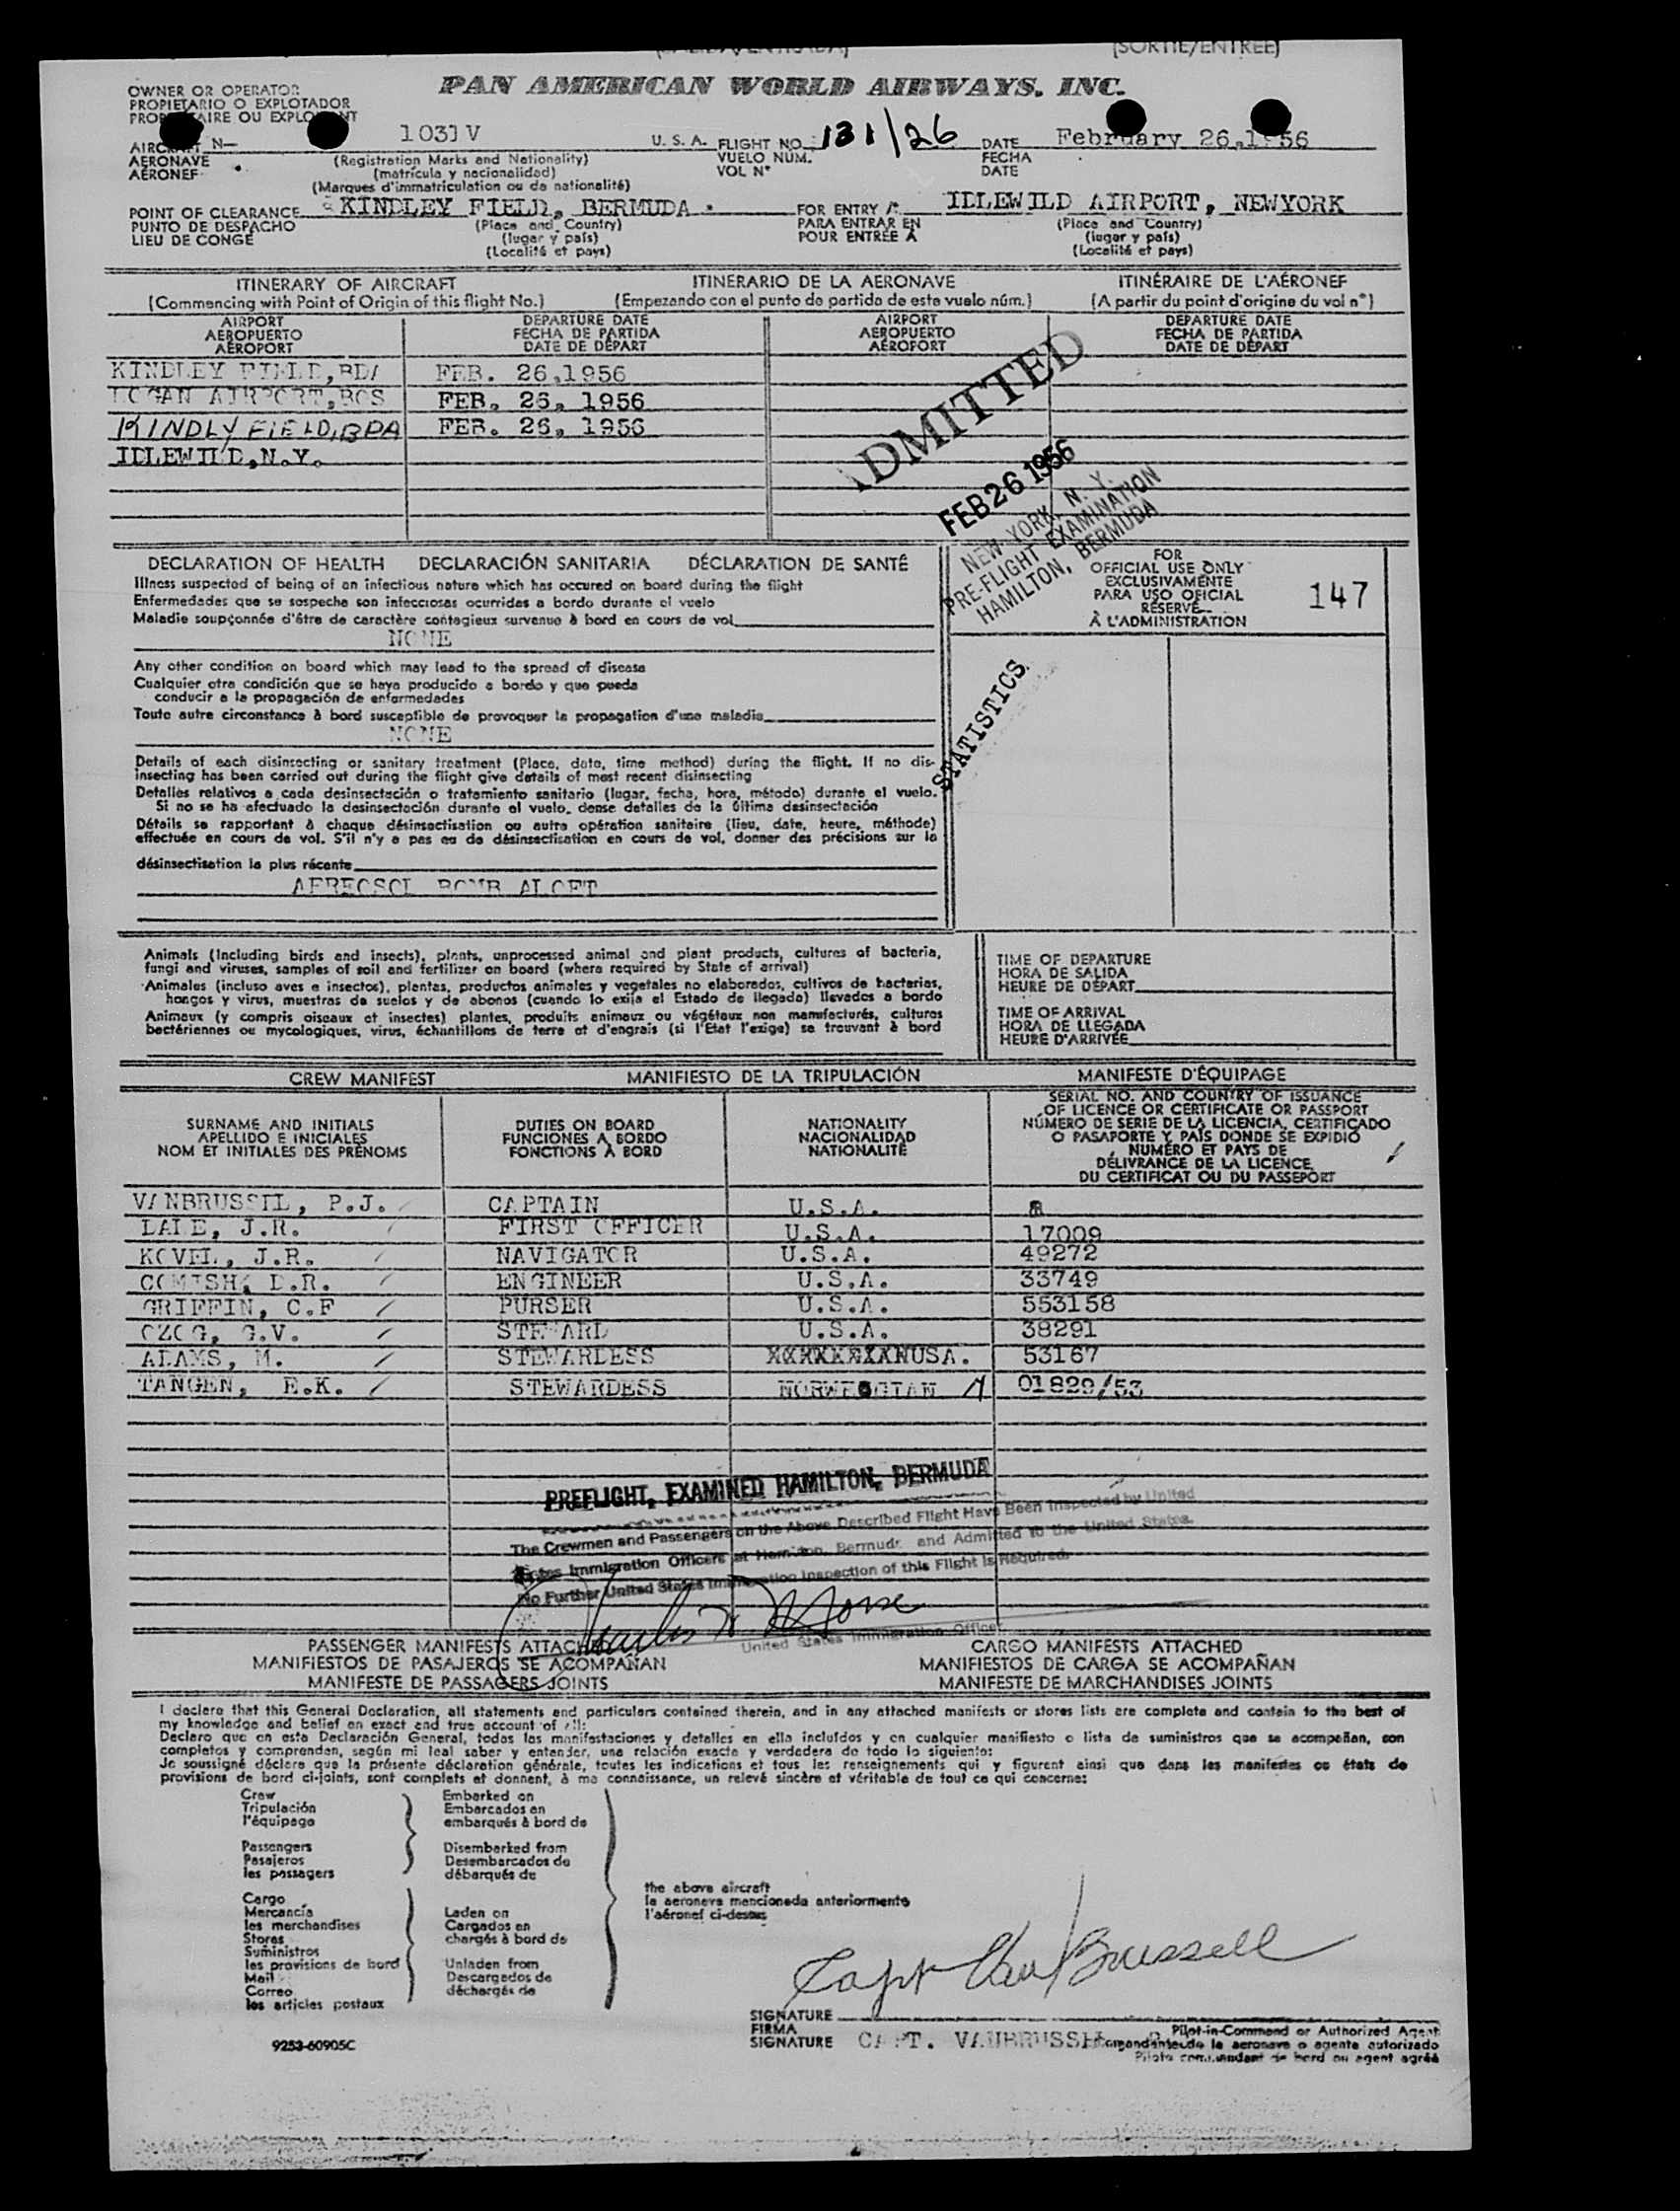 (SORTIE/ENTREE)
PAN AMERICAN WORLD AIRWAYS. INC.
OWNER OR OPERATOR
PROPIETARIO O EXPLOTADOR
AIRCRAFT N— 1031V U. S. A. FLIGHT NO. 131/26 DATE February 26,1956
AERONAVE (Registration Marks and Nationality) VUELO NUM. FECHA
AERONEF (matrícula y nacionalidad) VOL N° DATE
(Marques d'immatriculation ou de nationalité)
POINT OF CLEARANCE KINDLEY FIELD, BERMUDA FOR ENTRY IDLEWILD AIRPORT, NEWYORK
PUNTO DE DESPACHO (Place and Country) PARA ENTRAR EN (Place and Country)
LIEU DE CONGÉ (lugar y país) POUR ENTRÉE À (lugar y país)
(Localité et pays) (Localité et pays)
ITINERARY OF AIRCRAFT ITINERARIO DE LA AERONAVE ITINÉRAIRE DE L'AÉRONEF
(Commencing with Point of Origin of this flight No.) (Empezando con el punto de partida de este vuelo núm.) (A partir du point d'origine du vol n°)
AIRPORT DEPARTURE DATE AIRPORT DEPARTURE DATE
AEROPUERTO FECHA DE PARTIDA AEROPUERTO FECHA DE PARTIDA
AÉROPORT DATE DE DÉPART AÉROPORT DATE DE DÉPART
KINDLEY FIELD,BDA FEB. 26,1956
LOGAN AIRPORT,BOS FEB, 26, 1956
KINDLY FIELD,BDA FEB. 26, 1956
IDLEWILD,N.Y.
ADMITTED
FEB 26 1956
NEW YORK, N. Y.
PRE-FLIGHT EXAMINATION
HAMILTON, BERMUDA
DECLARATION OF HEALTH DECLARACIÓN SANITARIA DÉCLARATION DE SANTÉ
Illness suspected of being of an infectious nature which has occured on board during the flight
Enfermedades que se sospecha son infecciosas ocurridas a bordo durante el vuelo
Maladie soupçonnée d'être de caractère contagieux survenue à bord en cours de vol
NONE
FOR
OFFICIAL USE ONLY
EXCLUSIVAMENTE
PARA USO OFICIAL
RÉSERVÉ
À L'ADMINISTRATION
147
STATISTICS
Any other condition on board which may lead to the spread of disease
Cualquier otra condición que se haya producido a bordo y que pueda
conducir a la propagación de enfermedades
Toute autre circonstance à bord susceptible de provoquer la propagation d'une maladie
NONE
Details of each disinsecting or sanitary treatment (Place, date, time method) during the flight. If no dis-
insecting has been carried out during the flight give details of most recent disinsecting
Detalles relativos a cada desinsectación o tratamiento sanitario (lugar, fecha, hora, método) durante el vuelo.
Si no se ha efectuado la desinsectación durante el vuelo, dense detalles de la última desinsectación
Détails se rapportant à chaque désinsectisation ou autre opération sanitaire (lieu, date, heure, méthode)
effectuée en cours de vol. S'il n'y a pas eu de désinsectisation en cours de vol, donner des précisions sur la
désinsectisation la plus récente
AEREOSOL BOMB ALOFT
Animals (Including birds and insects), plants, unprocessed animal and plant products, cultures of bacteria,
fungi and viruses, samples of soil and fertilizer on board (where required by State of arrival)
Animales (incluso aves e insectos), plantas, productos animales y vegetales no elaborados, cultivos de bacterias,
hongos y virus, muestras de suelos y de abonos (cuando lo exija el Estado de llegada) llevados a bordo
Animaux (y compris oiseaux et insectes) plantes, produits animaux ou végétaux non manufacturés, cultures
bactériennes ou mycologiques, virus, échantillons de terre et d'engrais (si l'Etat l'exige) se trouvant à bord
TIME OF DEPARTURE
HORA DE SALIDA
HEURE DE DÉPART
TIME OF ARRIVAL
HORA DE LLEGADA
HEURE D'ARRIVÉE
CREW MANIFEST MANIFIESTO DE LA TRIPULACIÓN MANIFESTE D'ÉQUIPAGE
SURNAME AND INITIALS DUTIES ON BOARD NATIONALITY
APELLIDO E INICIALES FUNCIONES A BORDO NACIONALIDAD
NOM ET INITIALES DES PRÉNOMS FONCTIONS À BORD NATIONALITÉ
SERIAL NO. AND COUNTRY OF ISSUANCE
OF LICENCE OR CERTIFICATE OR PASSPORT
NÚMERO DE SERIE DE LA LICENCIA, CERTIFICADO
O PASAPORTE Y PAÍS DONDE SE EXPIDIÓ
NUMÉRO ET PAYS DE
DÉLIVRANCE DE LA LICENCE
DU CERTIFICAT OU DU PASSEPORT
VANBRUSSEL, P.J. CAPTAIN U.S.A.
J.R. FIRST OFFICER U.S.A. 17009
KOVEL, J.R. NAVIGATOR U.S.A. 49272
COMISH, D.R. ENGINEER U.S.A. 33749
GRIFFIN, C.F PURSER U.S.A. 553158
G.V. STEWARD U.S.A. 38291
ADAMS, M. STEWARDESS USA. 53167
TANGEN, E.K. STEWARDESS NORWEGIAN 01829/53
PREFLIGHT, EXAMINED HAMILTON, BERMUDA
The Crewmen and Passengers on the Above Described Flight Have Been Inspected by United
States Immigration Officers at Hamilton, Bermuda and Admitted to the United States.
No Further United States Immigration Inspection of this Flight Is Required.
Charles Morse
United States Immigration Officer
PASSENGER MANIFESTS ATTACHED CARGO MANIFESTS ATTACHED
MANIFIESTOS DE PASAJEROS SE ACOMPAÑAN MANIFIESTOS DE CARGA SE ACOMPAÑAN
MANIFESTE DE PASSAGERS JOINTS MANIFESTE DE MARCHANDISES JOINTS
I declare that this General Declaration, all statements and particulars contained therein, and in any attached manifests or stores lists are complete and contain to the best of
my knowledge and belief an exact and true account of all:
Declaro que en esta Declaración General, todas las manifestaciones y detalles en ella incluídos y en cualquier manifiesto o lista de suministros que se acompañan, son
completos y comprenden, según mi leal saber y entender, una relación exacta y verdadera de todo lo siguiente:
Je soussigné déclare que la présente déclaration générale, toutes les indications et tous les renseignements qui y figurent ainsi que dans les manifestes ou états de
provisions de bord ci-joints, sont complets et donnent, à ma connaissance, un relevé sincère et véritable de tout ce qui concerne:
Crew Embarked on
Tripulación Embarcados en
l'équipage embarqués à bord de
Passengers Disembarked from
Pasajeros Desembarcados de
les passagers débarqués de
the above aircraft
la aeronave mencionada anteriormente
l'aéronef ci-dessus
Cargo
Mercancía Laden on
les marchandises Cargados en
Stores chargés à bord de
Suministros
les provisions de bord Unladen from
Mail Descargados de
Correo déchargés de
les articles postaux
Capt VanBrussell
SIGNATURE
FIRMA Pilot-in-Command or Authorized Agent
SIGNATURE CAPT. VANBRUSSEL Comandante de la aeronave o agente autorizado
Pilote commandant de bord ou agent agréé
9253-60905C